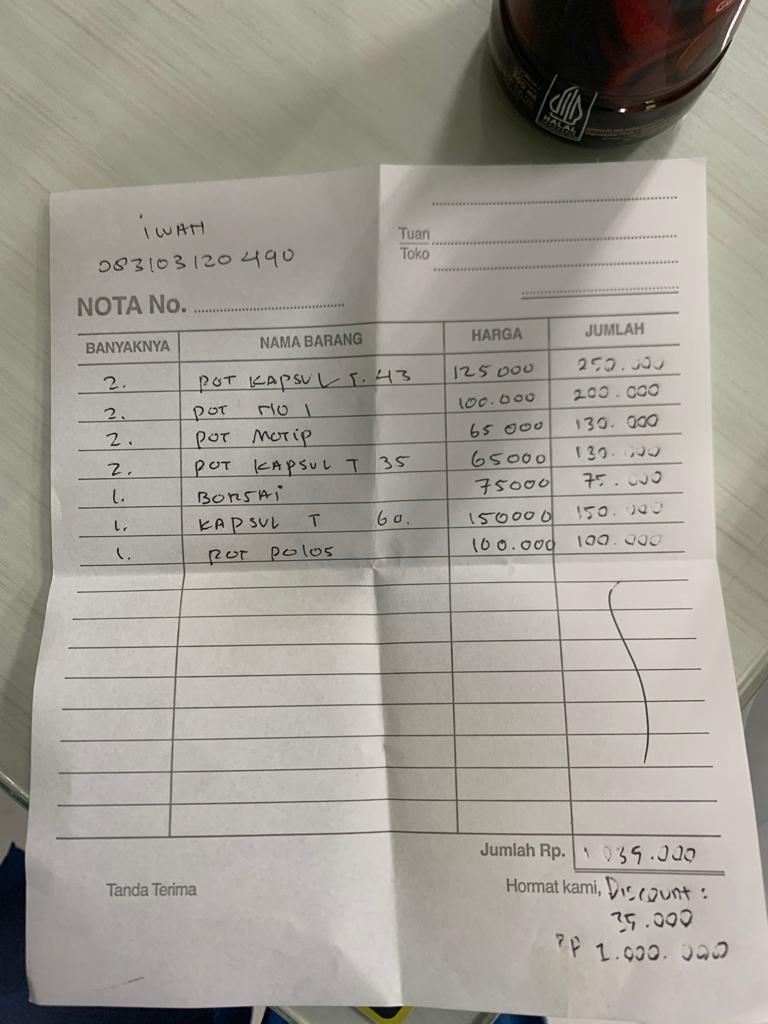 HALAL
iWAH
083103120490
Tuan
Toko
NOTA No.
BANYAKNYA NAMA BARANG HARGA JUMLAH
2. POT KAPSUL T. 43 125000 250.000
2. POT NO 1 100.000 200.000
2. POT MOTIP 65000 130.000
2. POT KAPSUL T 35 65000 130.000
1. BONSAi 75000 75.000
1. KAPSUL T 60. 150000 150.000
1. POT POLOS 100.000 100.000
Jumlah Rp. 1 035.000
Tanda Terima Hormat kami, Discount :
35.000
Rp 1.000.000